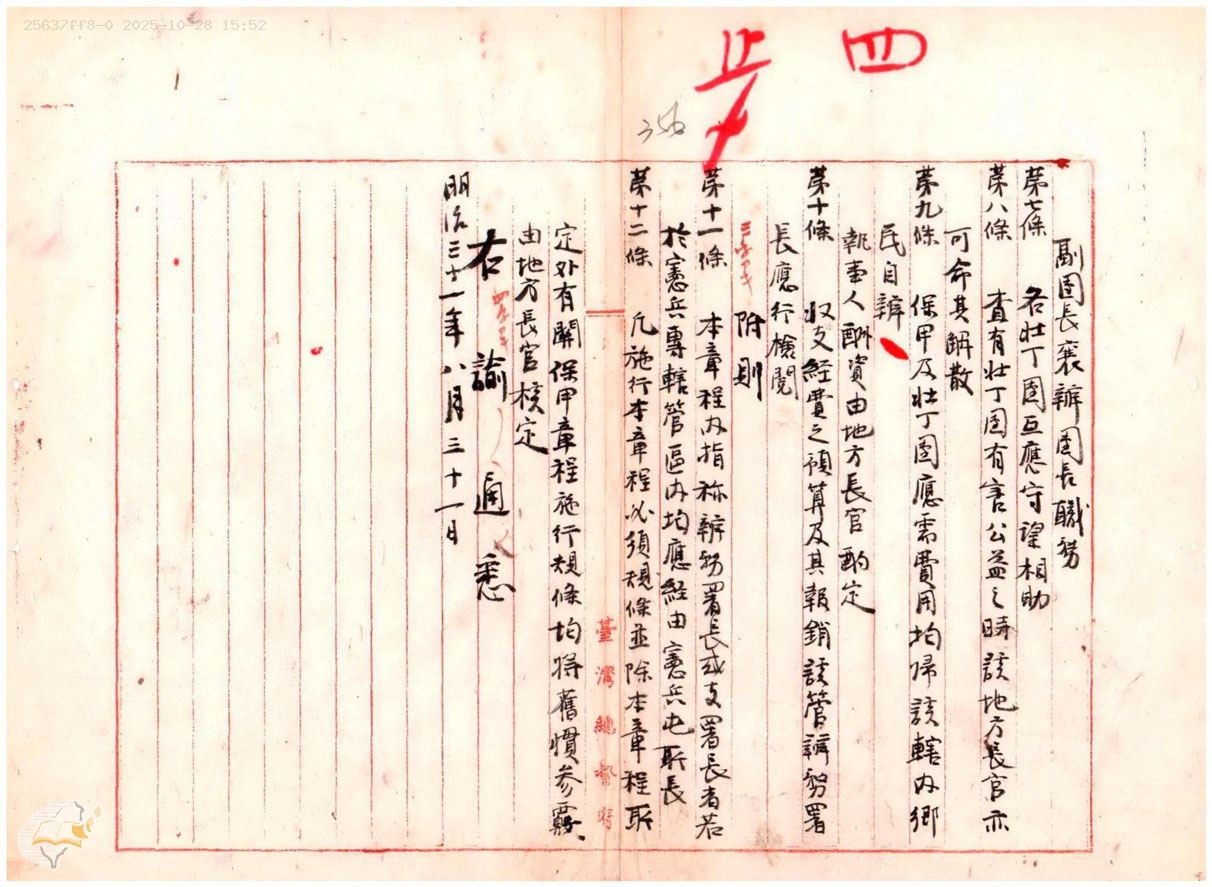 25637ff8-0 2025-10-28 15:52
四
副團長襄辦團長職務
第七條 各壯丁團互應守望相助
第八條 查有壯丁團有害公益之時該地方長官亦
可命其解散
第九條 保甲及壯丁團應需費用均歸該轄內鄉
民自辦
執事人酬資由地方長官酌定
第十條 收支經費之預算及其報銷該管辦務署
長應行檢閱
附則
第十一條 本章程內指称辦務署長或支署長者若
於憲兵專轄管區內均應經由憲兵屯所長
第十二條 凡施行本章程必須規條並除本章程所
臺灣總督府
定外有關保甲章程施行規條均將舊慣參
由地方長官核定
右諭通悉
明治三十一年八月三十一日